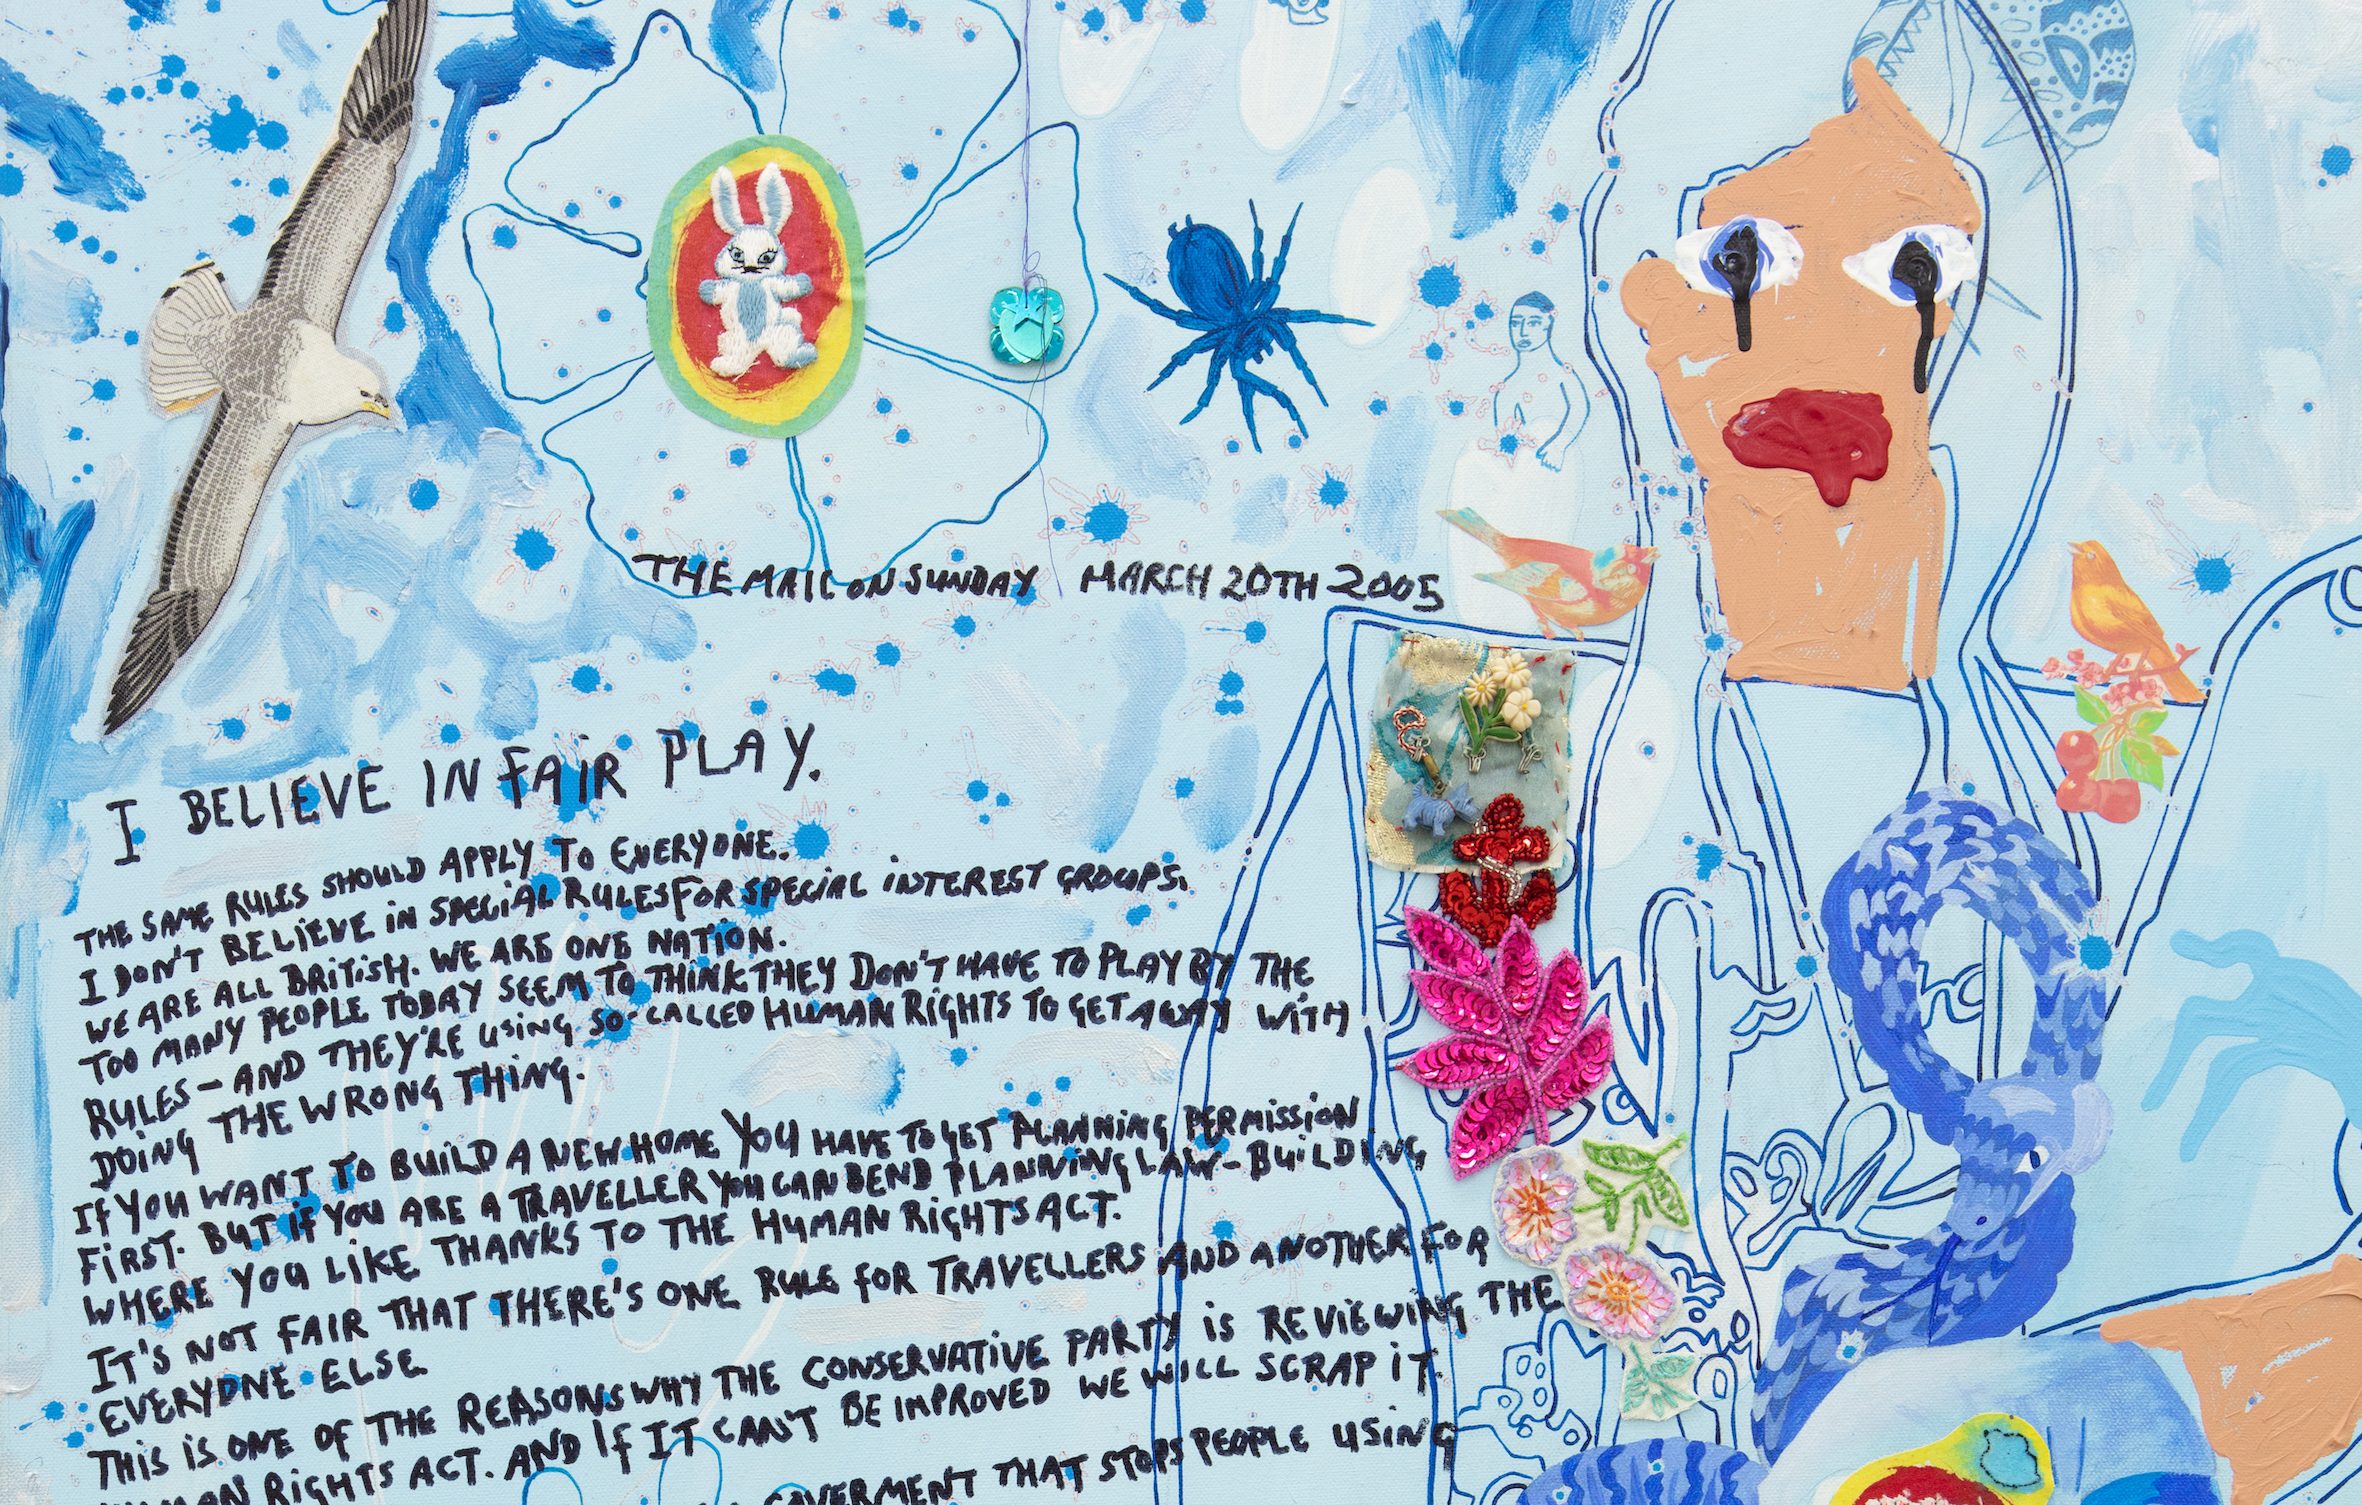 THE MAIL ON SUNDAY MARCH 20TH 2005
I BELIEVE IN FAIR PLAY.
THE SAME RULES SHOULD APPLY TO EVERYONE.
I DON'T BELIEVE IN SPECIAL RULES FOR SPECIAL INTEREST GROUPS.
WE ARE ALL BRITISH. WE ARE ONE NATION.
TOO MANY PEOPLE TODAY SEEM TO THINK THEY DON'T HAVE TO PLAY BY THE
RULES - AND THEY'RE USING SO-CALLED HUMAN RIGHTS TO GET AWAY WITH
DOING THE WRONG THING.
IF YOU WANT TO BUILD A NEW HOME YOU HAVE TO GET PLANNING PERMISSION
FIRST. BUT IF YOU ARE A TRAVELLER YOU CAN BEND PLANNING LAW - BUILDING
WHERE YOU LIKE THANKS TO THE HUMAN RIGHTS ACT.
IT'S NOT FAIR THAT THERE'S ONE RULE FOR TRAVELLERS AND ANOTHER FOR
EVERYONE ELSE
THIS IS ONE OF THE REASONS WHY THE CONSERVATIVE PARTY IS REVIEWING THE
HUMAN RIGHTS ACT. AND IF IT CAN'T BE IMPROVED WE WILL SCRAP IT.
GOVERMENT THAT STOPS PEOPLE USING